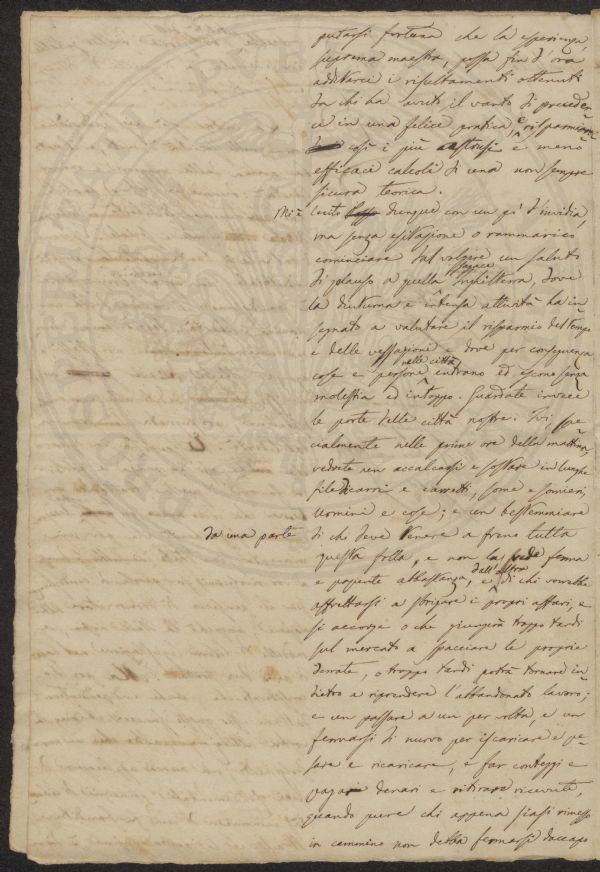 putarsi fortuna che la esperienza,
suprema maestra, possa fin d'ora
additarci i risultamenti ottenuti
da chi ha avuto il vanto di preceder
ci in una felice pratica, e risparmiarci
così i più astrusi e meno
efficaci calcoli di una non sempre
sicura teorica.
Mi è
dunque con un pò d'invidia,
ma senza esitazione o rammarico
cominciare dal volgere un saluto
di plauso a quella sagace Inghilterra, dove
la diuturna e intensa attività ha in
segnato a valutare il risparmio del tempo
e delle vessazioni e dove per conseguenza
cose e persone nelle città entrano ed escono senza
molestia ed intoppo. Guardate invece
le porte delle città nostre. Ivi, spe
cialmente nelle prime ore della mattina,
vedrete un accalcarsi e sostare in lunghe
file di carri e carretti, some e somieri,
uomini e cose; e un bestemmiare
da una parte
di chi deve tenere a freno tutta
questa folla, e non la vede ferma
e paziente abbastanza, e dall'altra di chi vorrebbe
affrettarsi a sbrigare i propri affari, e
si accorge o che giungerà troppo tardi
sul mercato a spacciare le proprie
derrate, o troppo tardi potrà tornare in
dietro a riprendere l'abbandonato lavoro;
e un passare a un per volta, e un
fermarsi di nuovo per iscaricare e pe
sare e ricaricare, e far conteggi e
pagar denari e ritirare ricevute,
quando pure chi appena siasi rimesso
in cammino non debba fermarsi daccapo